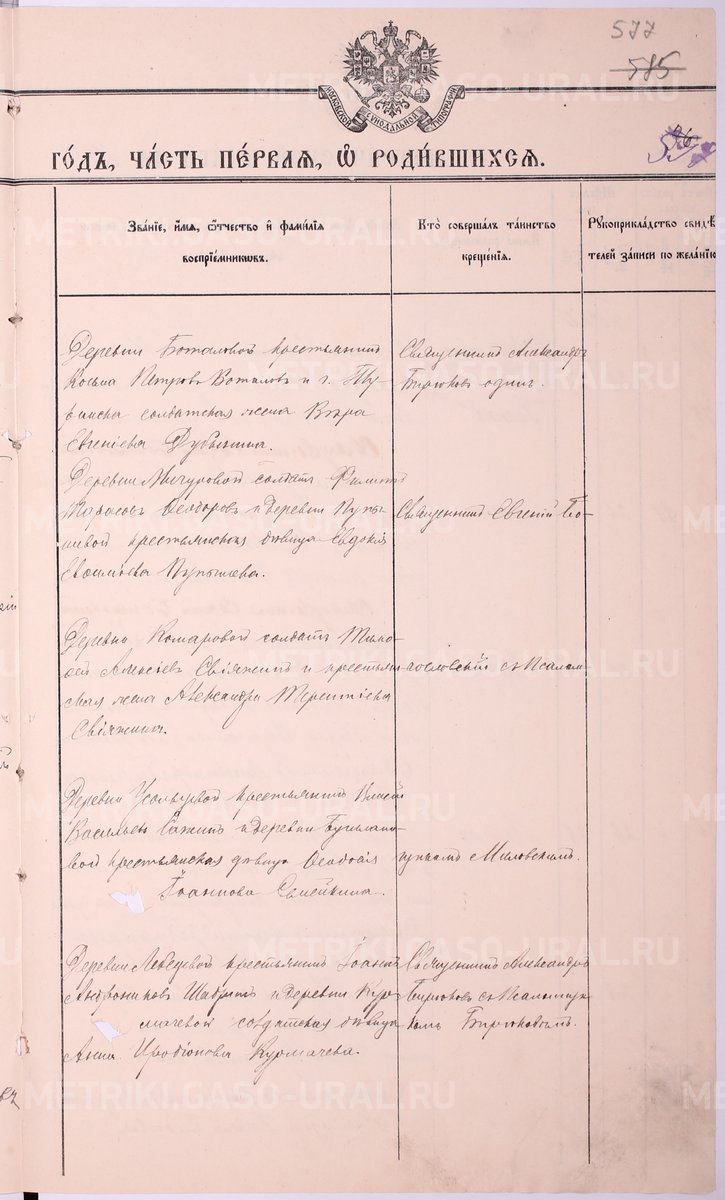 577
585
МОСКОВСКОЙ СУНОДАЛЬНОЙ ТИПОГРАФІИ
ГОДЪ, ЧАСТЬ ПЕРВАЯ, Ѡ РОДИВШИХСЯ.
Званіе, имя, ѿчество и фамилія воспріемниковъ.
Кто совершалъ таинство крещенія.
Рукоприкладство свидѣтелей записи по желанію
Деревни Боталовой крестьянинъ
Косьма Петровъ Боталовъ и г. Ту-
ринска солдатская жена Вѣра
Евгеніева Дубынина.
Священникъ Александръ
Бирюковъ один.
Деревни Мичуровой солдатъ Филиппъ
Тарасовъ Ѳеодоровъ и деревни Пупы-
шевой крестьянская дѣвица Евдокія
Евѳиміева Пупышева.
Священникъ Евгеній Бо-
Деревни Комаровой солдатъ Тимо-
ѳей Алексіевъ Свіяжинъ и крестьян-
ская жена Александра Терентіева
Свіяжина.
гословскій съ Псалом-
Деревни Усольцевой крестьянинъ
Васильевъ Сажинъ и деревни
крестьянская дѣвица Ѳеодосія
Іоаннова Семейкина.
щикомъ Миловскимъ.
Деревни Лебедевой крестьянинъ Іоаннъ
Андрониковъ Шабринъ и деревни Кур-
мачевой солдатская дѣвица
Анна Иродіонова Курмачева.
Священникъ Александръ
Бирюковъ съ Псаломщи-
комъ Бирюковымъ.
METRIKI.GASO-URAL.RU